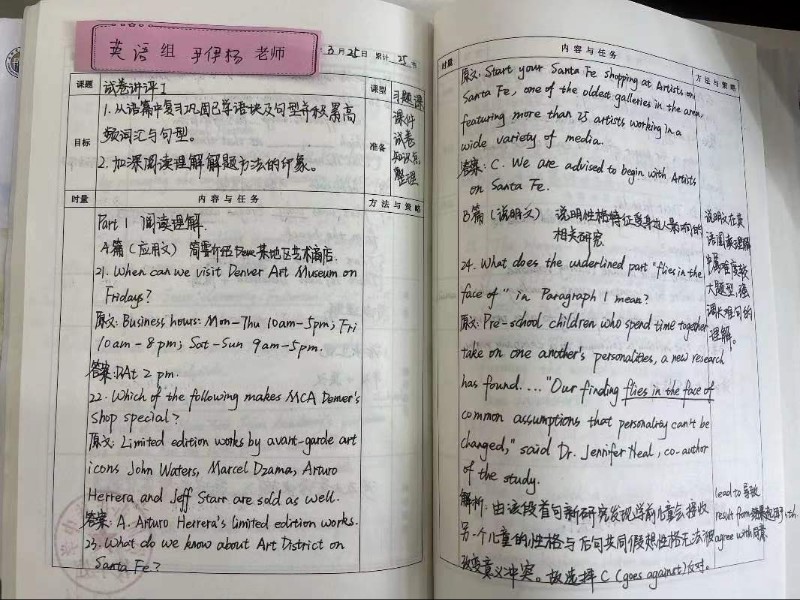 英语组 尹伊杨 老师
3月25日 累计 25 节
课题 试卷讲评1 课型 习题课
目标
1. 从语篇中复习巩固已学语块及句型并积累高
频词汇与句型。
2. 加深阅读理解解题方法的印象。
准备
课件
试卷
知识点
整理
时量 内容与任务 方法与策略
Part 1 阅读理解
A篇(应用文) 简要介绍 某地区艺术商店.
21. When can we visit Denver Art Museum on
Fridays?
原文: Business hours: Mon-Thu 10am-5pm; Fri
10am-8pm; Sat-Sun 9am-5pm.
答案: B At 2 pm.
22. Which of the following makes MCA Denver's
shop special?
原文: Limited edition works by avant-garde art
icons John Waters, Marcel Dzama, Arturo
Herrera and Jeff Starr are sold as well.
答案: A. Arturo Herrera's limited edition works.
23. What do we know about Art District on
Santa Fe?
时量 内容与任务 方法与策略
原文: Start your Santa Fe shopping at Artists on
Santa Fe, one of the oldest galleries in the area,
featuring more than 25 artists working in a
wide variety of media.
答案: C. We are advised to begin with Artists
on Santa Fe.
B篇(说明文) 说明性格特征受身边人影响的
相关研究
24. What does the underlined part "flies in the
face of" in Paragraph 1 mean?
原文: Pre-school children who spend time together
take on one another's personalities, a new research
has found. ... "Our finding flies in the face of
common assumptions that personality can't be
changed," said Dr. Jennifer Neal, co-author
of the study.
解析: 由该段首句新研究发现学前儿童会接收
另一个儿童的性格与后句共同假想性格无法被
改变意义冲突。故选择 C (goes against) 反对.
说明文在英
语阅读理解
中属难度较
大题型,强
调长难句的
理解。
lead to 导致
result from
agree with 同意